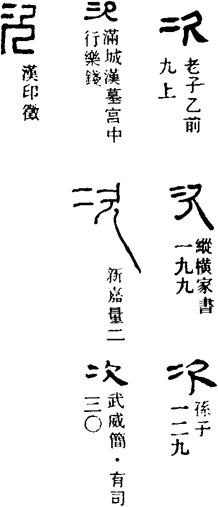 次
老子乙前
九上
次
縱橫家書
一九九
次
孫子
一二九
次
滿城漢墓宮中
行樂錢
次
新嘉量二
次
武威簡·有司
三〇
次
漢印徵